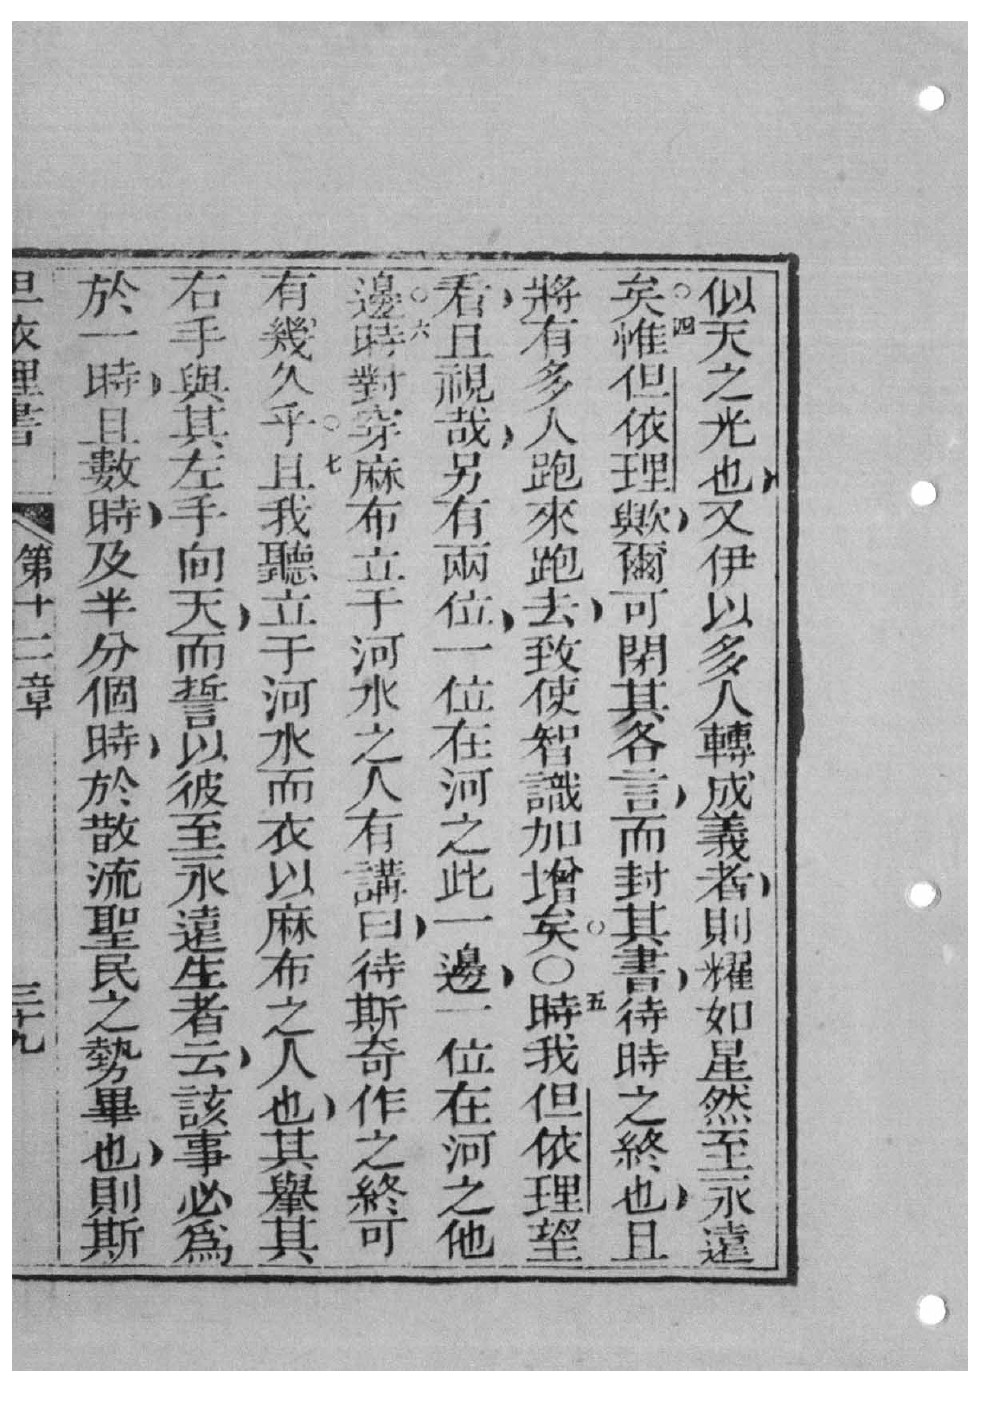 似天之光也又伊以多人轉成義者則耀如星然至永遠
矣○四惟但依理歟爾可閉其各言而封其書待時之終也且
將有多人跑來跑去致使智識加增矣○○五時我但依理望
看且視哉另有兩位一位在河之此一邊一位在河之他
邊○六時對穿麻布立于河水之人有講曰待斯奇作之終可
有幾久乎○七且我聽立于河水而衣以麻布之人也其舉其
右手與其左手向天而誓以彼至永遠生者云該事必為
於一時且數時及半分個時於散流聖民之勢畢也則斯
但依理書 第十二章 三十九